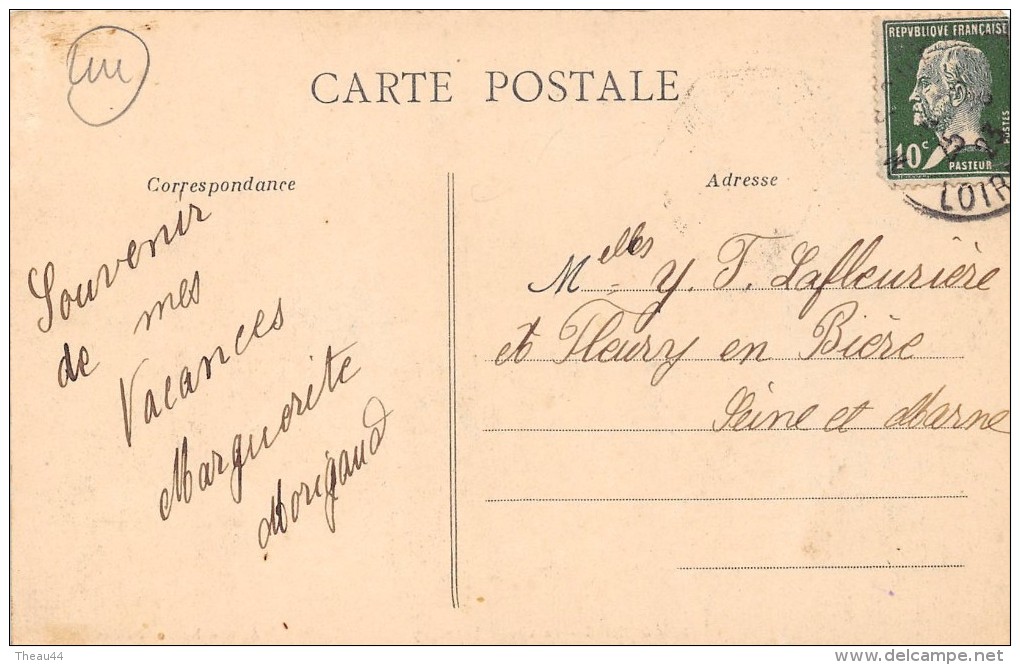 CARTE POSTALE
REPVBLIQUE FRANÇAISE
10c
POSTES
PASTEUR
23
LOIR
Correspondance
Souvenir
de mes
Vacances
Marguerite
Morigaud
Adresse
Melles Y. T. Lafleurière
à Fleury en Bière
Seine et Marne
Theau44
delcampe.net